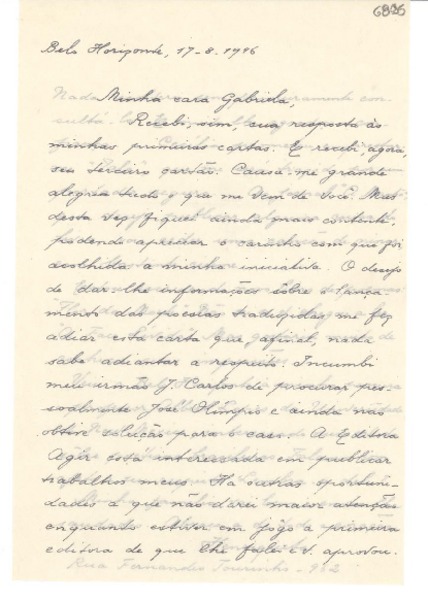 6826
Belo Horizonte, 17-8-1946
Minha cara Gabriela,
Recebi, sim, sua resposta às
minhas primeiras cartas. E recebi, agora,
seu terceiro cartão. Causa-me grande
alegria tudo o que me vem de você. Mas
desta vez fiquei ainda mais contente,
podendo apreciar o carinho com que foi
acolhida a minha iniciativa. O desejo
de dar-lhe informações sôbre o lança
mento das poesias traduzidas me fez
adiar esta carta que, afinal, nada
sabe adiantar a respeito. Incumbi
meu irmão J. Carlos de procurar pes-
soalmente José Olimpio e ainda não
obtive solução para o caso. A Editora
Agir está interessada em publicar
trabalhos meus. Há outras oportuni-
dades a que não darei maior atenção
enquanto estiver em jôgo a primeira
editora de que lhe falei e v. aprovou.
Rua Fernandes Tourinho -